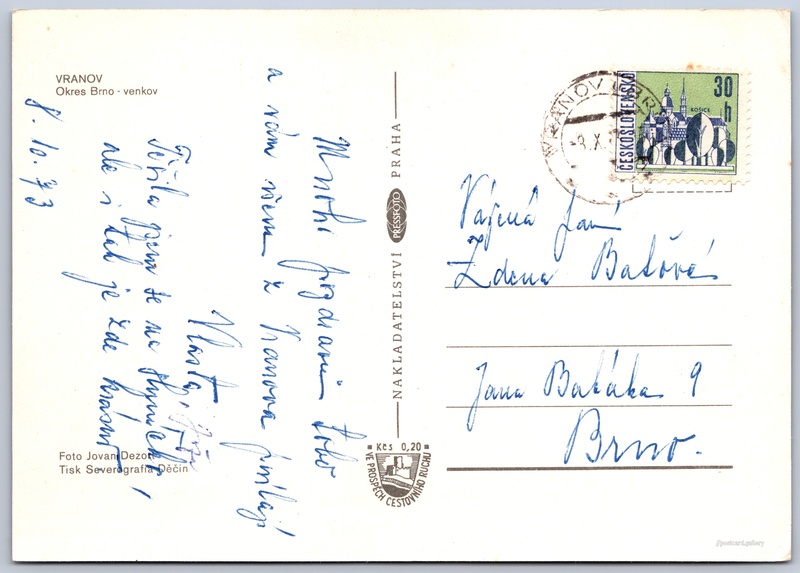 VRANOV
Okres Brno - venkov
8. 10. 73
Mnoho pozdravů Tobě
a vám všem z Vranova posílají
Vlasta,
Těšila jsem se na
ale i tak je zde krásně,
Foto Jovan Dezort
Tisk Severografia Děčín
NAKLADATELSTVÍ PRESSFOTO PRAHA
Kčs 0,20
VE PROSPĚCH CESTOVNÍHO RUCHU
VRANOV U BR
-8.X.
ČESKOSLOVENSKO
30 h
KOŠICE
Vážená paní
Zdena Baťová
Jana Babáka 9
Brno.
postcard.gallery